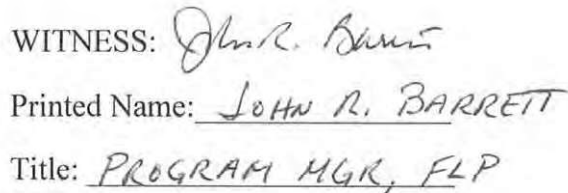 WITNESS: John R. Barrett
Printed Name: JOHN R. BARRETT
Title: PROGRAM MGR, FLP